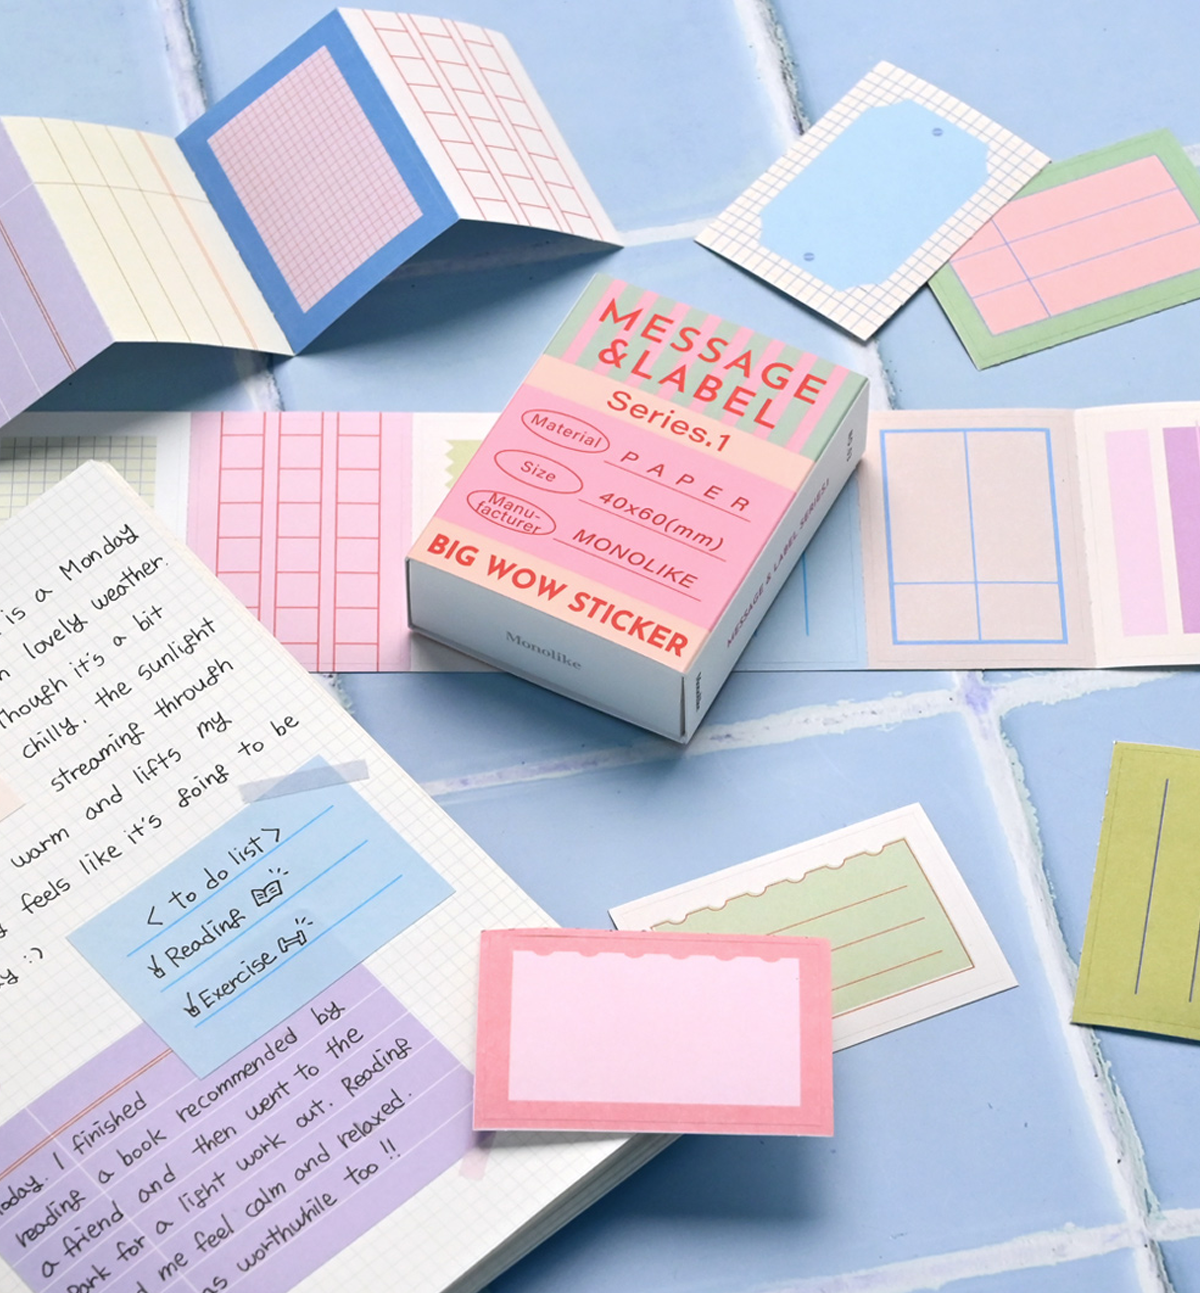 MESSAGE
&LABEL
Series.1
Material PAPER
Size 40x60(mm)
Manu-
facturer MONOLIKE
BIG WOW STICKER
Monolike
MESSAGE & LABEL SERIES.1
is a Monday
lovely weather.
Though it's a bit
chilly. the sunlight
streaming through
warm and lifts my
feels like it's going to be
:)
< to do list >
Reading
Exercise
oday. I finished
reading a book recommended by
a friend and then went to the
Park for a light work out. Reading
me feel calm and relaxed.
as worthwhile too !!